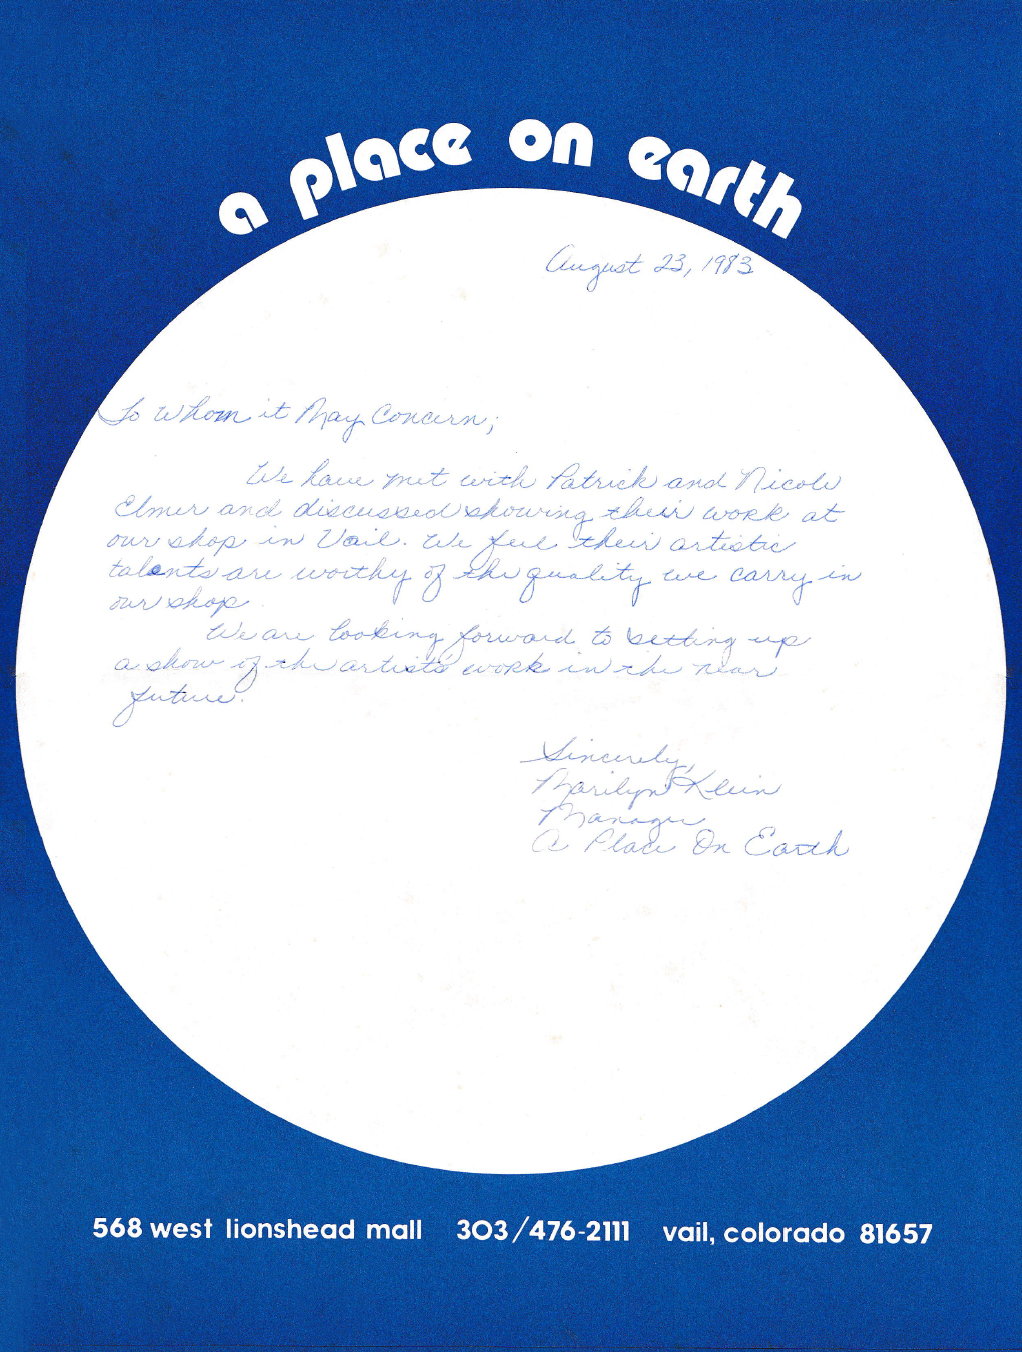 a place on earth
August 23, 1983
To Whom it May Concern;
We have met with Patrick and Nicole
Elmer and discussed showing their work at
our shop in Vail. We feel their artistic
talents are worthy of the quality we carry in
our shop.
We are looking forward to setting up
a show of the artists' work in the near
future.
Sincerely,
Marilyn Klein
Manager
A Place On Earth
568 west lionshead mall 303/476-2111 vail, colorado 81657